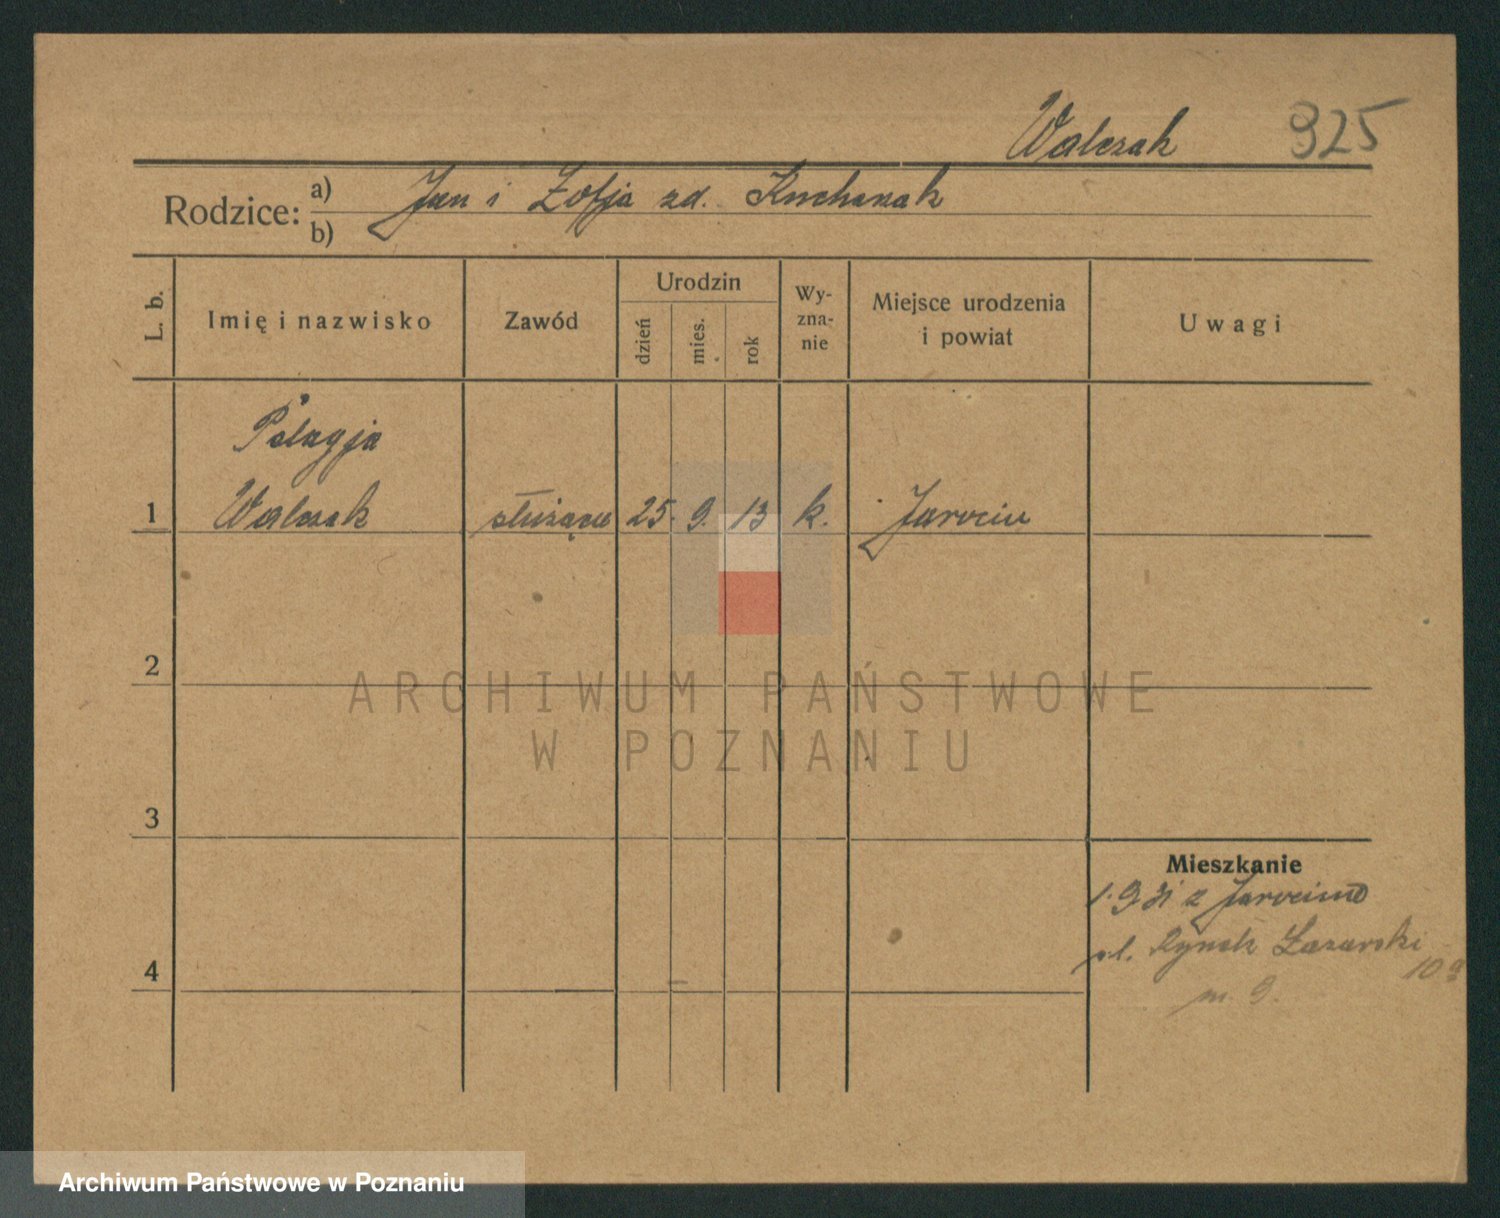 Walczak 925
Rodzice: a) Jan i Zofja zd. Kucharzak
b)
L. b.
Imię i nazwisko
Zawód
Urodzin
dzień
mies.
rok
Wy-
zna-
nie
Miejsce urodzenia
i powiat
Uwagi
Pelagja
1 Walczak służąca 25. 9. 13 k. Jarocin
2
3
4
Mieszkanie
1.9 31 z Jarocina
ul. Rynek Łazarski
10a
m. 9.
ARCHIWUM PAŃSTWOWE
W POZNANIU
Archiwum Państwowe w Poznaniu